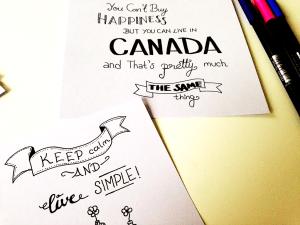 You Can't Buy
HAPPINESS
BUT YOU CAN LIVE IN
CANADA
and That's pretty much
THE SAME
thing
KEEP calm
AND
live SIMPLE!